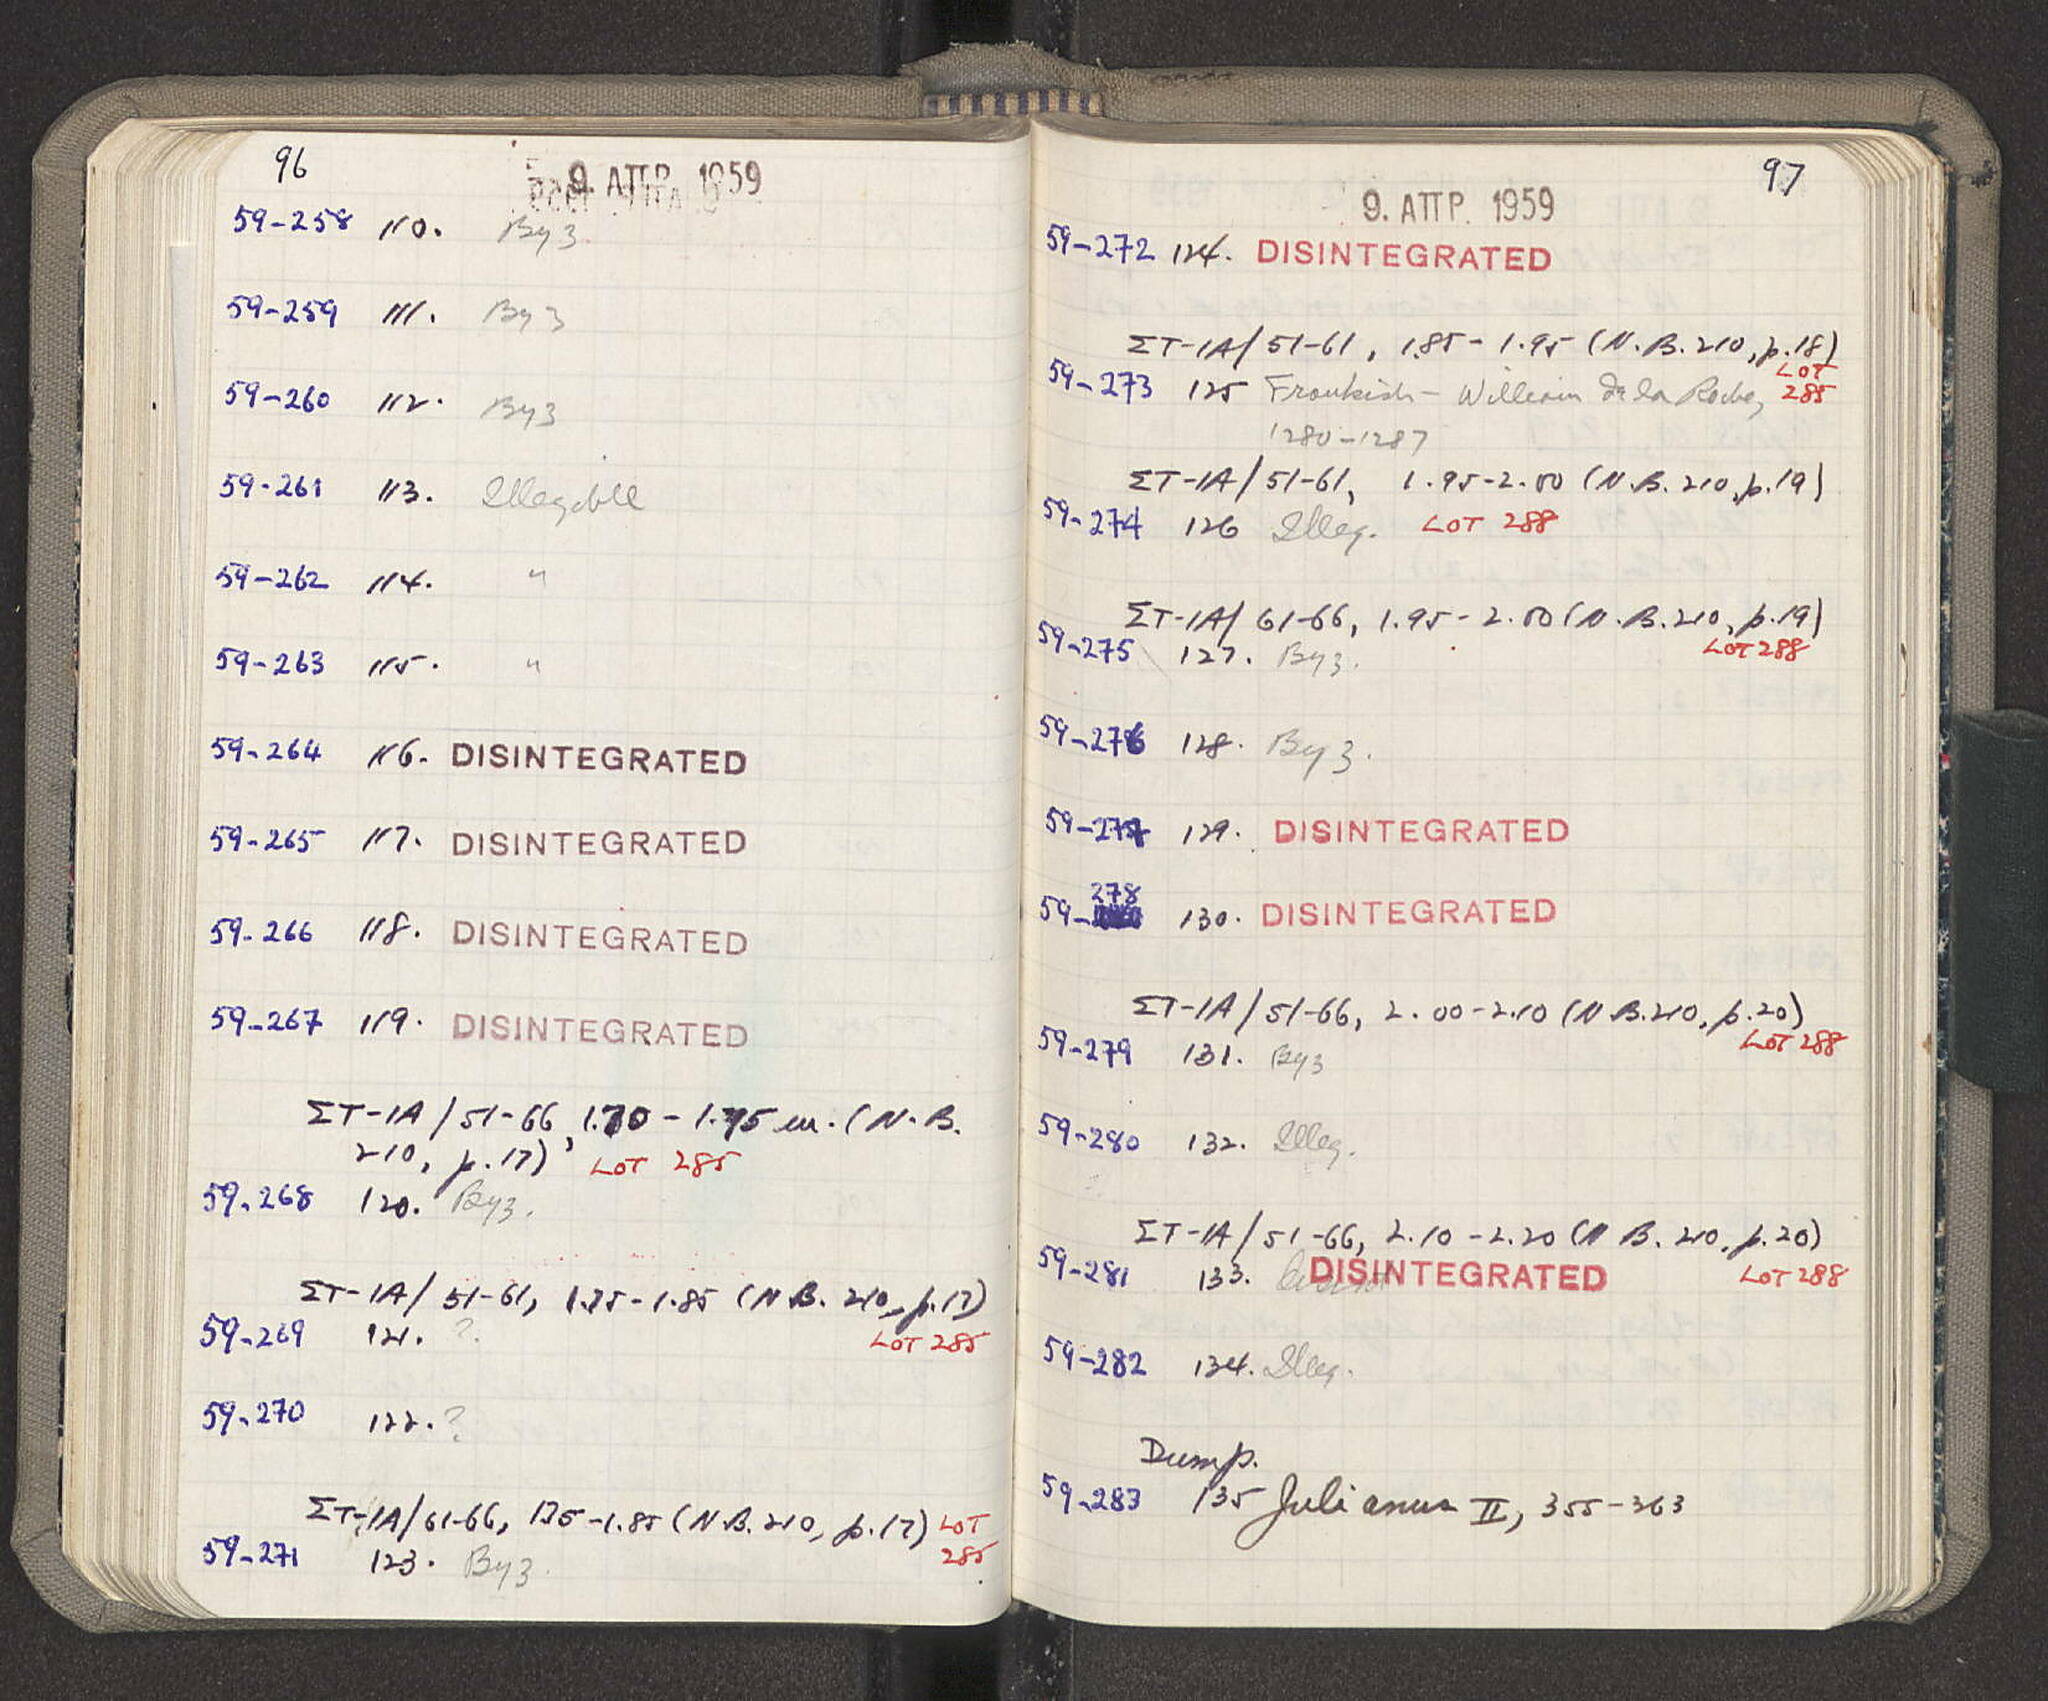 96
9. ΑΠΡ. 1959
59-258 110. By 3
59-259 111. By 3
59-260 112. By 3
59-261 113. Illegible
59-262 114. "
59-263 115. "
59-264 116. DISINTEGRATED
59-265 117. DISINTEGRATED
59-266 118. DISINTEGRATED
59-267 119. DISINTEGRATED
ΣΤ-1Α/51-66, 1.70-1.75 m. (N.B.
210, p.17) LOT 285
59-268 120. By 3.
ΣΤ-1Α/51-61, 1.75-1.85 (N.B. 210, p.17)
59-269 121. ? LOT 285
59-270 122. ?
ΣΤ-1Α/61-66, 1.75-1.85 (N.B. 210, p.17) LOT
285
59-271 123. By 3.
97
9. ΑΠΡ. 1959
59-272 124. DISINTEGRATED
ΣΤ-1Α/51-61, 1.85-1.95 (N.B. 210, p.18)
LOT
59-273 125 Frankish - William de la Roche, 285
1280-1287
ΣΤ-1Α/51-61, 1.95-2.00 (N.B. 210, p.19)
59-274 126 Illeg. LOT 288
ΣΤ-1Α/61-66, 1.95-2.00 (N.B. 210, p.19)
59-275 127. By 3. LOT 288
59-276 128. By 3.
59-277 129. DISINTEGRATED
278
59- 130. DISINTEGRATED
ΣΤ-1Α/51-66, 2.00-2.10 (N.B. 210, p.20)
LOT 288
59-279 131. By 3
59-280 132. Illeg.
ΣΤ-1Α/51-66, 2.10-2.20 (N.B. 210, p.20)
59-281 133. DISINTEGRATED LOT 288
59-282 134. Illeg.
Dump.
59-283 135 Julianus II, 355-363